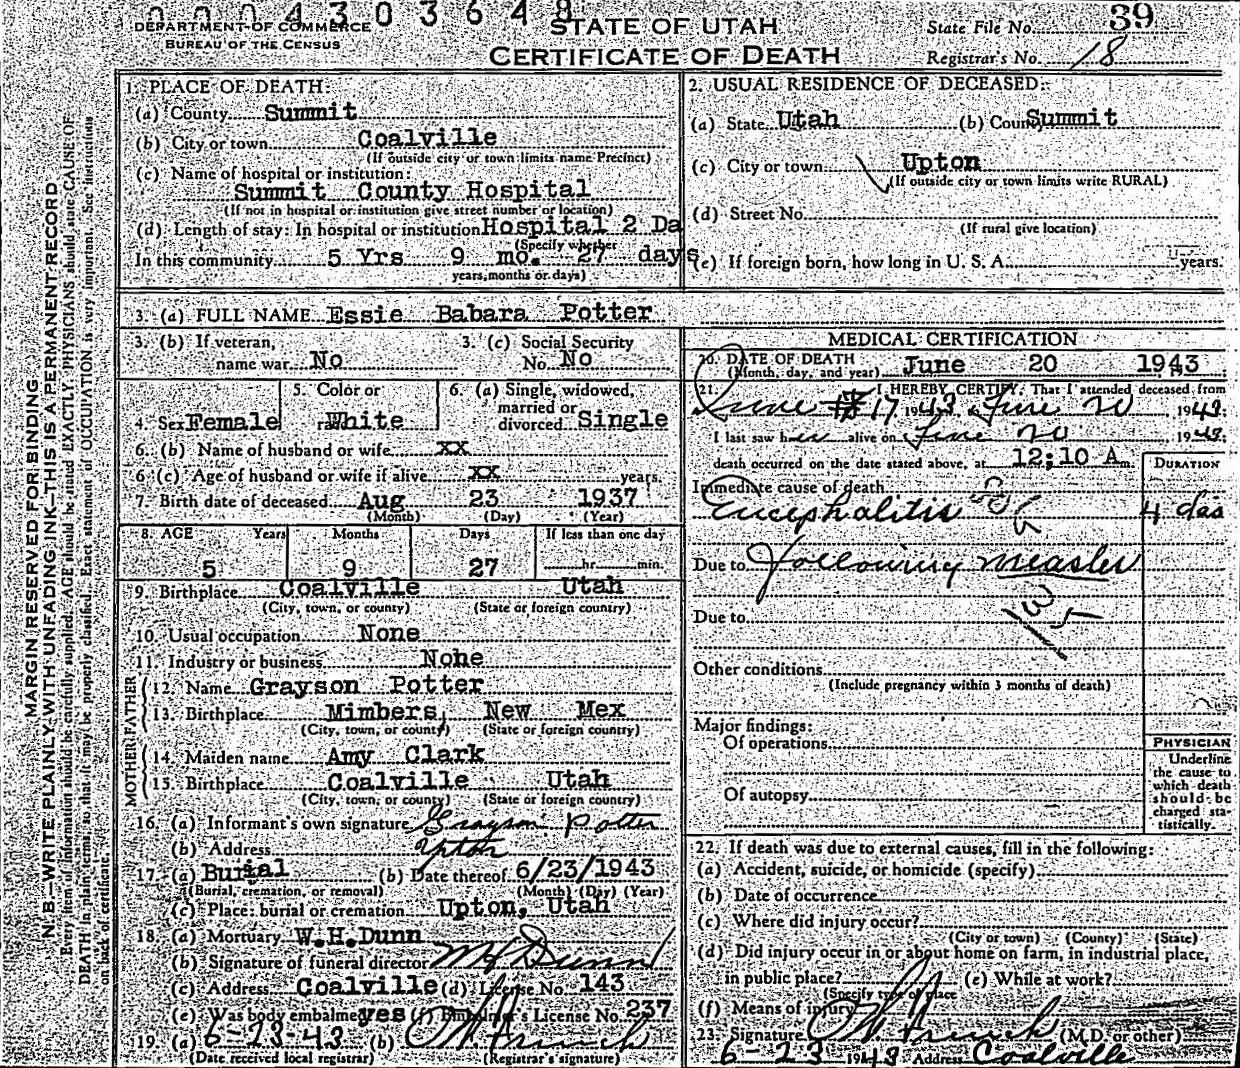 0004303648
DEPARTMENT OF COMMERCE
BUREAU OF THE CENSUS
STATE OF UTAH
CERTIFICATE OF DEATH
State File No. 39
Registrar's No. 18
MARGIN RESERVED FOR BINDING
N. B.—WRITE PLAINLY, WITH UNFADING INK—THIS IS A PERMANENT RECORD
Every item of information should be carefully supplied. AGE should be stated EXACTLY. PHYSICIANS should state CAUSE OF
DEATH in plain terms, so that it may be properly classified. Exact statement of OCCUPATION is very important. See instructions
on back of certificate.
1. PLACE OF DEATH:
(a) County Summit
(b) City or town Coalville
(If outside city or town limits name Precinct)
(c) Name of hospital or institution:
Summit County Hospital
(If not in hospital or institution give street number or location)
(d) Length of stay: In hospital or institution Hospital 2 Da
(Specify whether
In this community 5 Yrs 9 mo. 27 days
years, months or days)
2. USUAL RESIDENCE OF DECEASED:
(a) State Utah (b) County Summit
(c) City or town Upton
(If outside city or town limits write RURAL)
(d) Street No.
(If rural give location)
(e) If foreign born, how long in U. S. A. years.
3. (a) FULL NAME Essie Babara Potter
3. (b) If veteran, name war No
3. (c) Social Security No. No
4. Sex Female
5. Color or race White
6. (a) Single, widowed, married or divorced Single
6. (b) Name of husband or wife xx
6 (c) Age of husband or wife if alive xx years.
7. Birth date of deceased Aug 23 1937
(Month) (Day) (Year)
8. AGE Years Months Days If less than one day
5 9 27 hr. min.
9. Birthplace Coalville Utah
(City, town, or county) (State or foreign country)
10. Usual occupation None
11. Industry or business None
FATHER
12. Name Grayson Potter
13. Birthplace Mimbers, New Mex
(City, town, or county) (State or foreign country)
MOTHER
14. Maiden name Amy Clark
15. Birthplace Coalville Utah
(City, town, or county) (State or foreign country)
16. (a) Informant's own signature Grayson Potter
(b) Address Upton
17. (a) Burial (b) Date thereof 6/23/1943
(Burial, cremation, or removal) (Month) (Day) (Year)
(c) Place: burial or cremation Upton, Utah
18. (a) Mortuary W.H.Dunn
(b) Signature of funeral director W H Dunn
(c) Address Coalville (d) License No. 143
(e) Was body embalmed yes (f) Embalmer's License No. 237
19. (a) 6-23-43 (b)
(Date received local registrar) (Registrar's signature)
MEDICAL CERTIFICATION
20. DATE OF DEATH June 20 1943
(Month, day, and year)
21. I HEREBY CERTIFY: That I attended deceased from
June 17 1943 to June 20 1943.
I last saw her alive on June 20, 1943.
death occurred on the date stated above, at 12;10 A m.
DURATION
Immediate cause of death
Encephalitis 4 das
Due to following measles
35
Due to
Other conditions
(Include pregnancy within 3 months of death)
Major findings:
Of operations
Of autopsy
PHYSICIAN
Underline
the cause to
which death
should be
charged sta-
tistically.
22. If death was due to external causes, fill in the following:
(a) Accident, suicide, or homicide (specify)
(b) Date of occurrence
(c) Where did injury occur?
(City or town) (County) (State)
(d) Did injury occur in or about home on farm, in industrial place,
in public place? (e) While at work?
(Specify type of place
(f) Means of injury
23. Signature (M.D. or other)
6-23 1943 Address Coalville